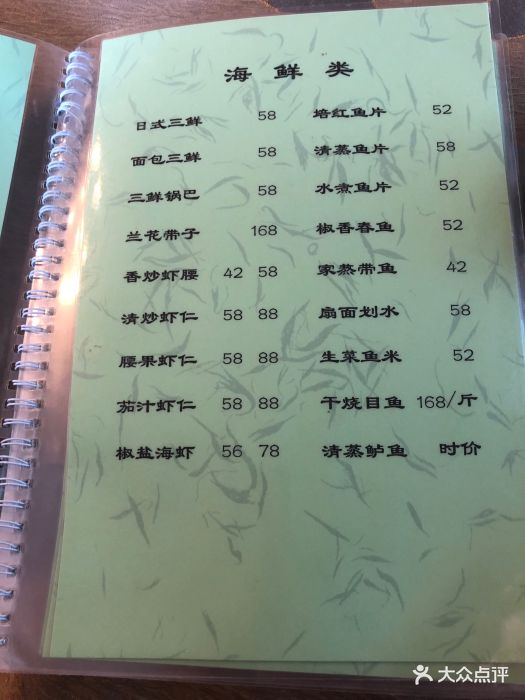 海鲜类
日式三鲜 58 培红鱼片 52
面包三鲜 58 清蒸鱼片 58
三鲜锅巴 58 水煮鱼片 52
兰花带子 168 椒香春鱼 52
香炒虾腰 42 58 家蒸带鱼 42
清炒虾仁 58 88 扇面划水 58
腰果虾仁 58 88 生菜鱼米 52
茄汁虾仁 58 88 干烧目鱼 168/斤
椒盐海虾 56 78 清蒸鲈鱼 时价
大众点评